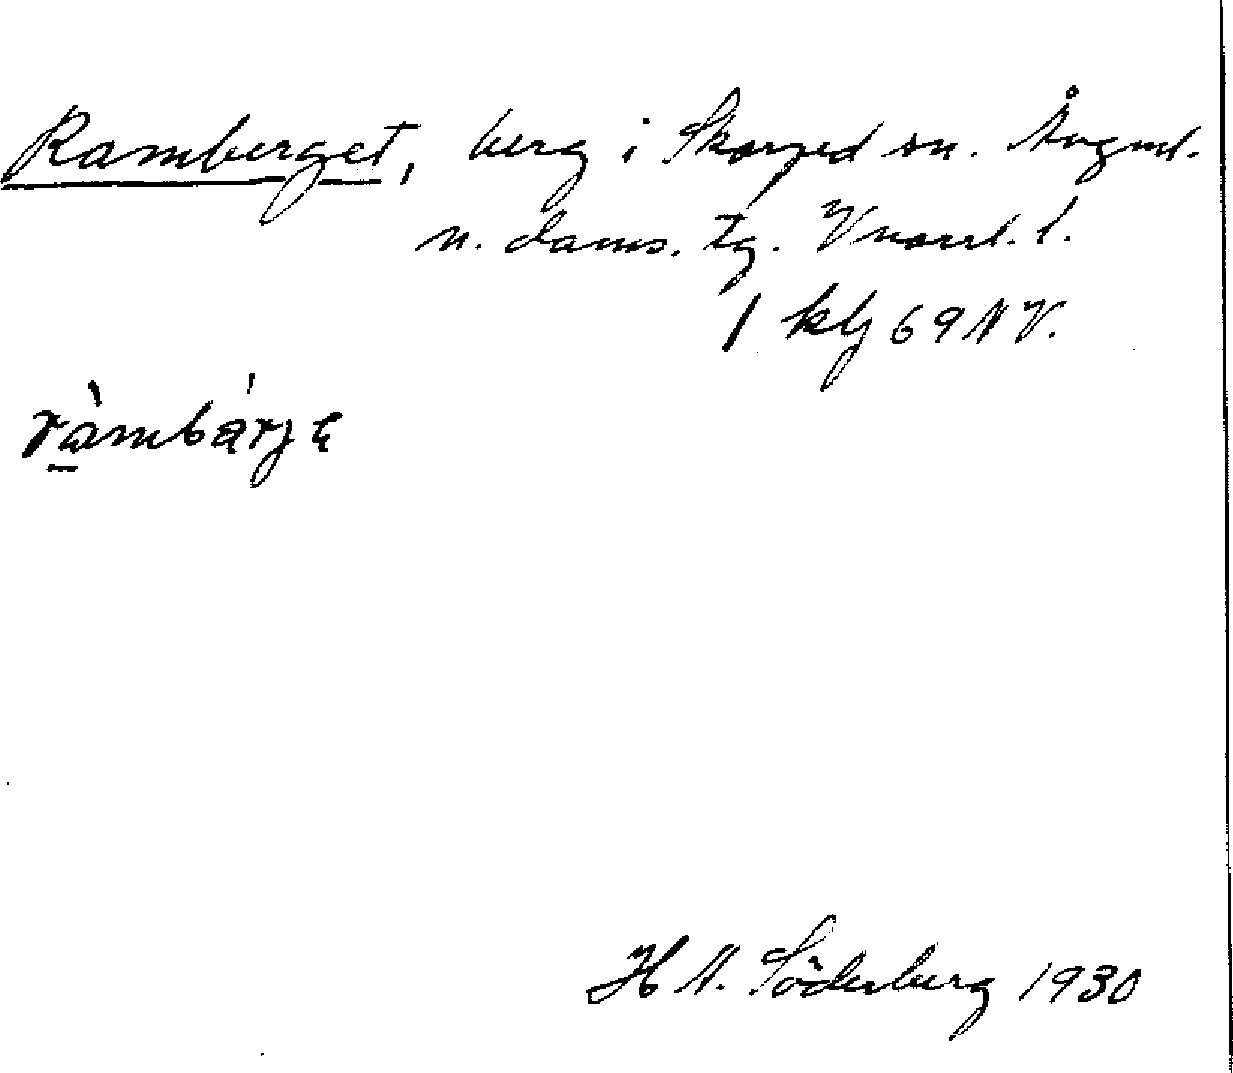 Ramberget, berg i Skorped sn. Ångml.
n. doms. tg. Vnorrl. l.
1 kbl 69 NV.
ràmbárjẹ
H N. Söderberg 1930